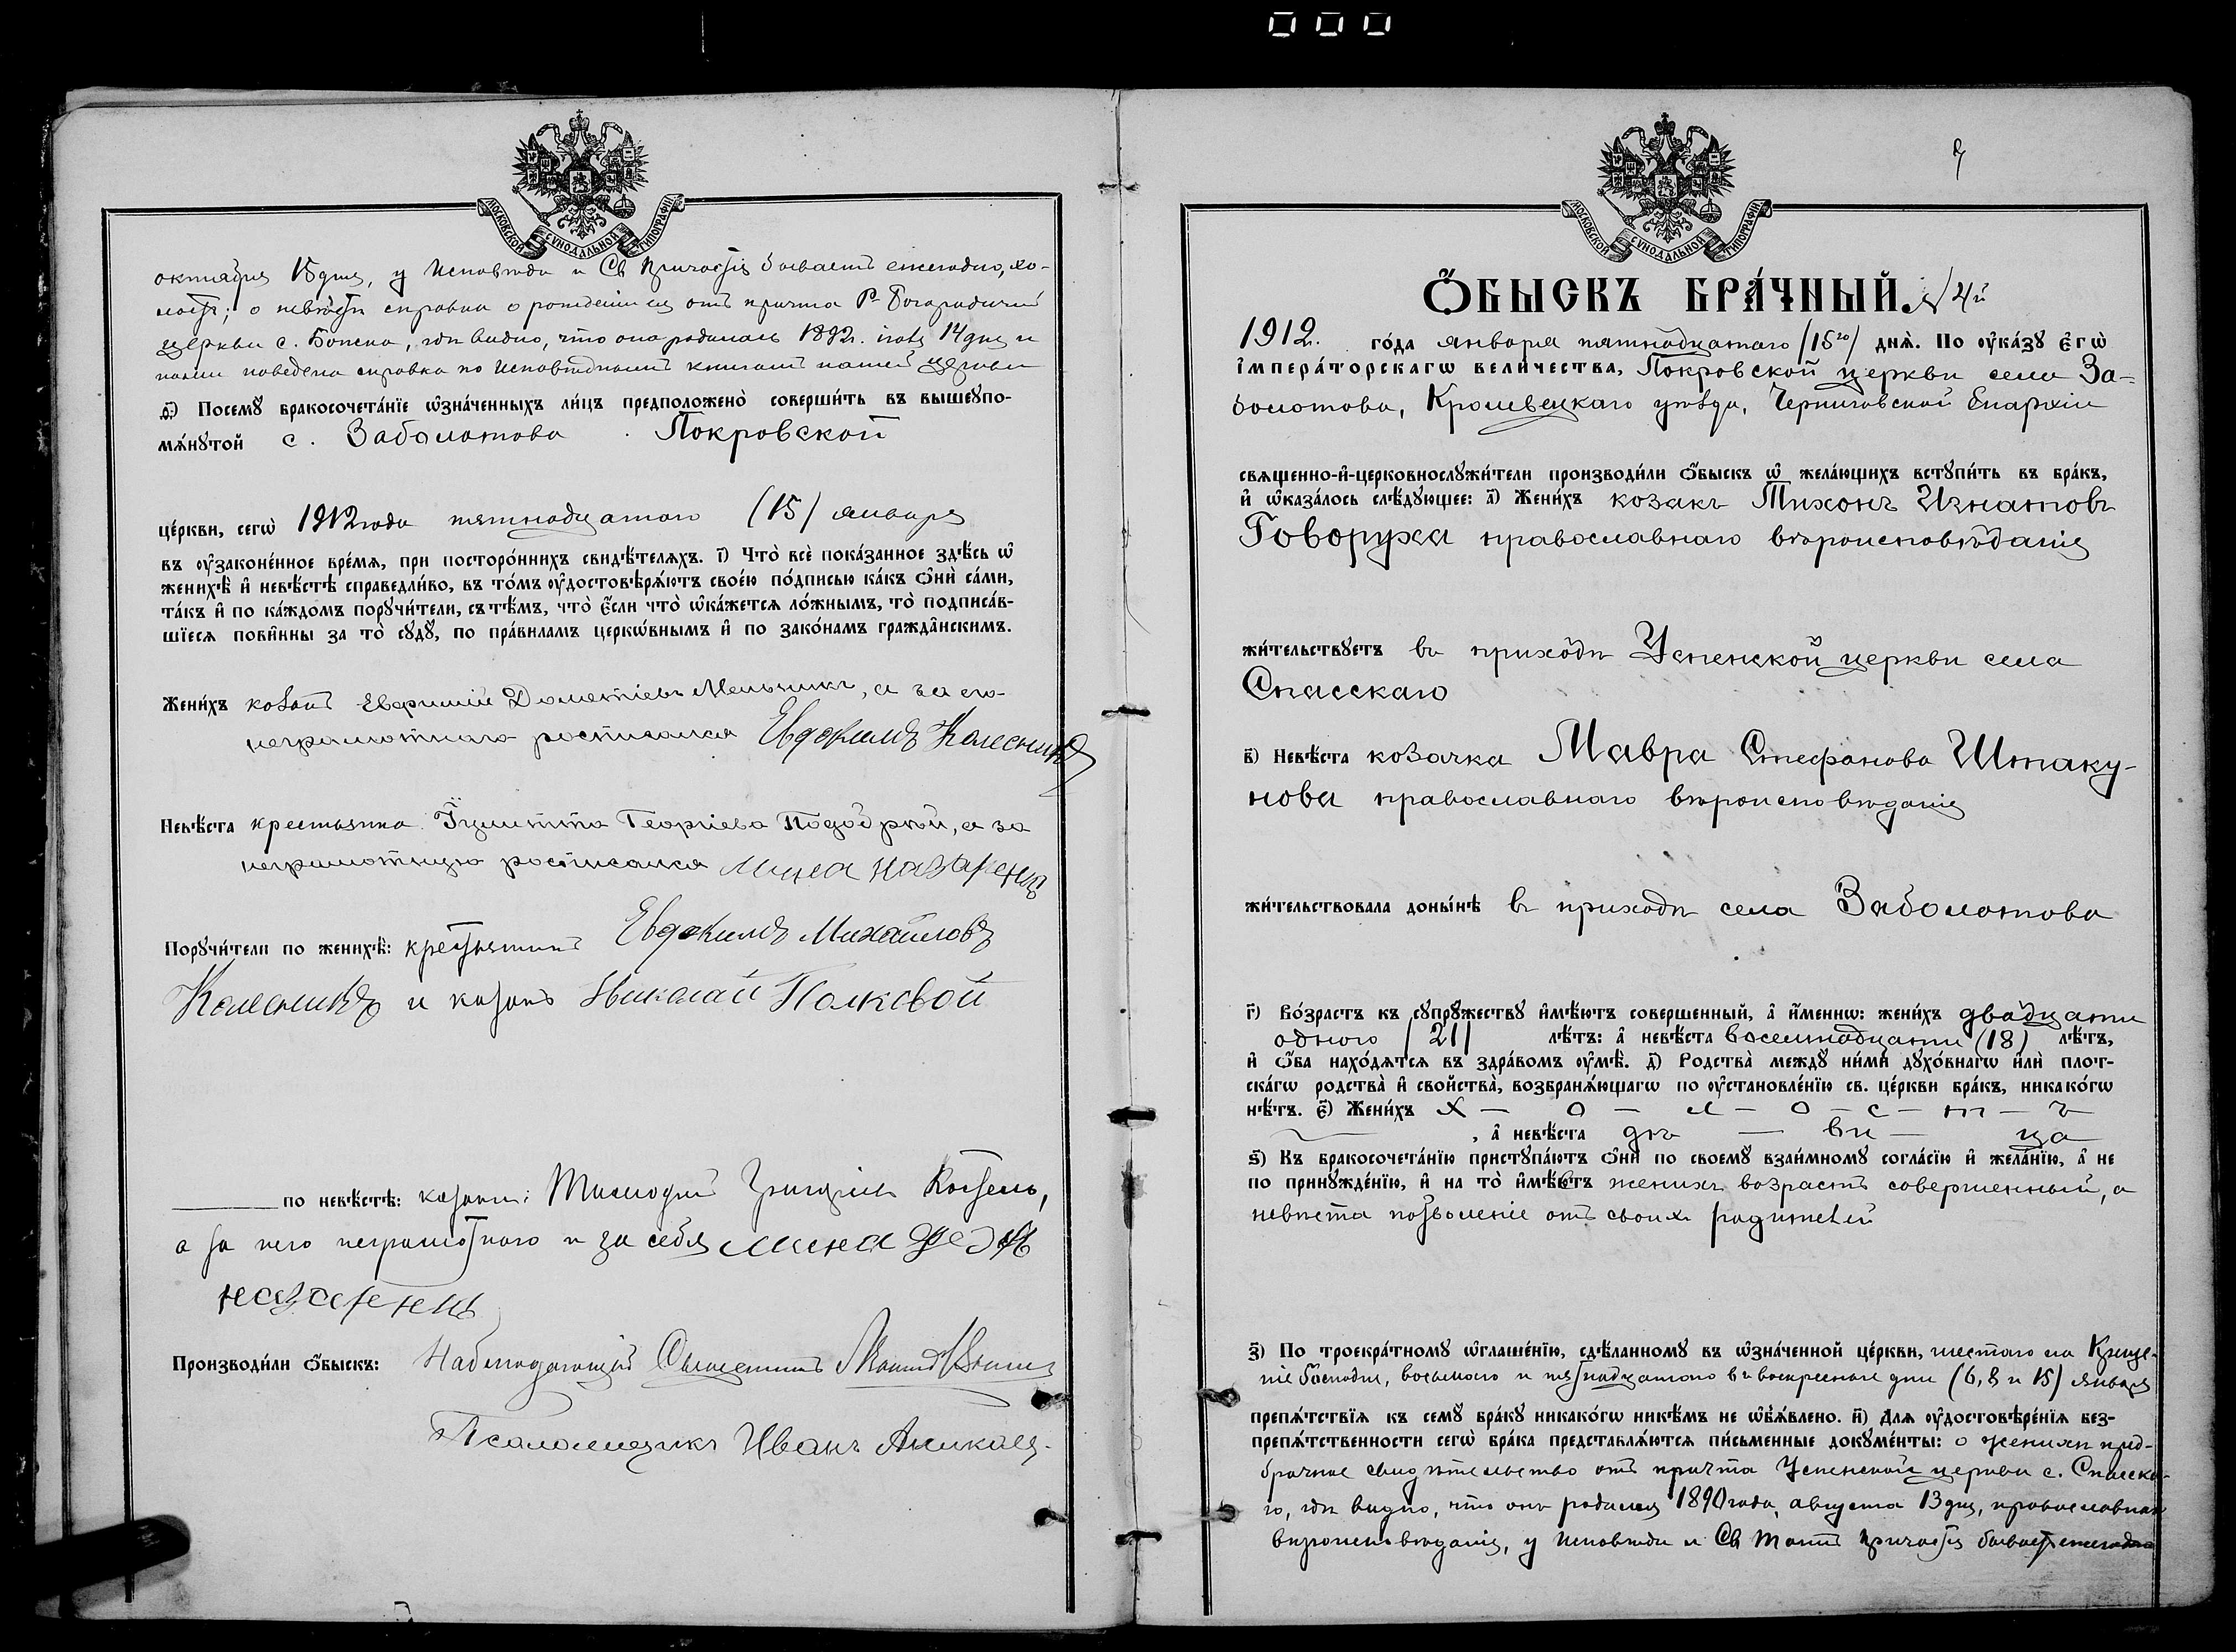 МОСКОВСКОЙ СѴНОДАЛЬНОЙ ТИПОГРАФІИ
октября 15 дня, у исповѣди и Св Причастія бываетъ ежегодно, хо-
лостъ; о невѣстѣ справка о рожденіи ея отъ причта Р-Богородичной
церкви с. , гдѣ видно, что она родилась 1892 г. 14 дня и
нами наведена справка по исповѣднымъ книгамъ нашей церкви
Посемꙋ бракосочета́нїе ѡ҆зна́ченныхъ ли́цъ предположено̀ соверши́ть въ вышеꙋпо-
мѧ́нꙋтой с. Заболотова Покровской
це́ркви, сегѡ̀ 1912 года пятнадцатаго (15) января
въ ᲂу҆законе́нное вре́мѧ, при посторо́ннихъ свидѣ́телѧхъ. і҃) Что̀ всѐ пока́занное здѣ́сь ѡ҆
женихѣ̀ и҆ невѣ́стѣ справедли́во, въ то́мъ ᲂу҆достовѣрѧ́ютъ свое́ю по́дписью ка́къ ѻ҆нѝ са́ми,
та́къ и҆ по ка́ждомъ порꙋчи́тели, съ тѣ́мъ, что̀ є҆́сли что̀ ѡ҆ка́жетсѧ ло́жнымъ, то̀ подписа́в-
шїесѧ пови́нны за то̀ сꙋдꙋ̀, по пра́виламъ церкѡ́внымъ и҆ по зако́намъ гражда́нскимъ.
Жени́хъ козакъ Дометіевъ Мельникъ, а за его
неграмотнаго росписался Евдокимъ Колесникъ
Невѣ́ста крестьянка Георгіева , а за
неграмотную росписался Мина Назаренко
Порꙋчи́тели по женихѣ̀: крестьянинъ Евдокимъ Михайловъ
Колесникъ и козакъ Николай Полковой
по невѣ́стѣ: козаки: Григоріевъ ,
а за него неграмотнаго и за себя Мина Федоровъ
Назаренко
Производи́ли ѻ҆́быскъ: Наблюдающій Священникъ
Псаломщикъ Иванъ
МОСКОВСКОЙ СѴНОДАЛЬНОЙ ТИПОГРАФІИ
Ѻ҆́БЫСКЪ БРА́ЧНЫЙ. № 4й
1912. го́да января пятнадцатаго (15го) днѧ̀. По ᲂу҆ка́зꙋ є҆гѡ̀
і҆мпера́торскагѡ вели́чества, Покровской церкви села За-
болотова, Кролевецкаго уѣзда, Черниговской Епархіи
свѧщенно-и҆-церковнослꙋжи́тели производи́ли ѻ҆́быскъ ѡ҆ жела́ющихъ встꙋпи́ть въ бра́къ,
и҆ ѡ҆каза́лось слѣ́дꙋющее: а҃) Жени́хъ козакъ Тихонъ Игнатовъ
Говоруха православнаго вѣроисповѣданія
жи́тельствꙋетъ въ приходѣ Успенской церкви села
Спасскаго
в҃) Невѣ́ста козачка Мавра Стефанова Штаку-
нова православнаго вѣроисповѣданія
жи́тельствовала доны́нѣ въ приходѣ села Заболотова
г҃) Во́зрастъ къ сꙋпрꙋ́жествꙋ и҆мѣ́ютъ совершенный, а҆ и҆́меннѡ: жени́хъ двадцати
одного (21) лѣ́тъ: а҆ невѣ́ста восемнадцати (18) лѣ́тъ,
и҆ ѻ҆́ба нахо́дѧтсѧ въ здра́вомъ ᲂу҆мѣ̀. д҃) Родства̀ междꙋ ни́ми дꙋхо́внагѡ и҆лѝ плот-
ска́гѡ родства̀ и҆ свойства̀, возбранѧ́ющагѡ по ᲂу҆становле́нїю св. це́ркви бра́къ, никако́гѡ
нѣ́тъ. є҃) Жени́хъ х — о — л — о — с — т — ъ
, а҆ невѣ́ста дѣ — ви — ца
ѕ҃) Къ бракосочета́нїю пристꙋпа́ютъ ѻ҆нѝ по своемꙋ̀ взаи́мномꙋ согла́сїю и҆ жела́нїю, а҆ не
по принꙋжде́нїю, и҆ на то̀ и҆мѣ́етъ женихъ возрастъ совершенный, а
невѣста позволеніе отъ своихъ родителей
з҃) По троекра́тномꙋ ѡ҆глаше́нїю, сдѣ́ланномꙋ въ ѡ҆зна́ченной це́ркви, шестого на Креще-
ніе Господне, восьмого и пятнадцатого въ воскресные дни (6, 8 и 15) января
препѧ́тствїѧ къ семꙋ̀ бра́кꙋ никако́гѡ никѣ́мъ не ѡ҆б̾ѧ́влено. и҃) Длѧ ᲂу҆достовѣре́нїѧ без-
препѧ́тственности сегѡ̀ бра́ка представлѧ́ютсѧ пи́сьменные докꙋме́нты: о женихѣ пред-
брачное свидѣтельство отъ причта Успенской церкви с. Спасска-
го, гдѣ видно, что онъ родился 1890 года августа 13 дня, православнаго
вѣроисповѣданія, у исповѣди и Св Таинъ Причастія бываетъ ежегодно